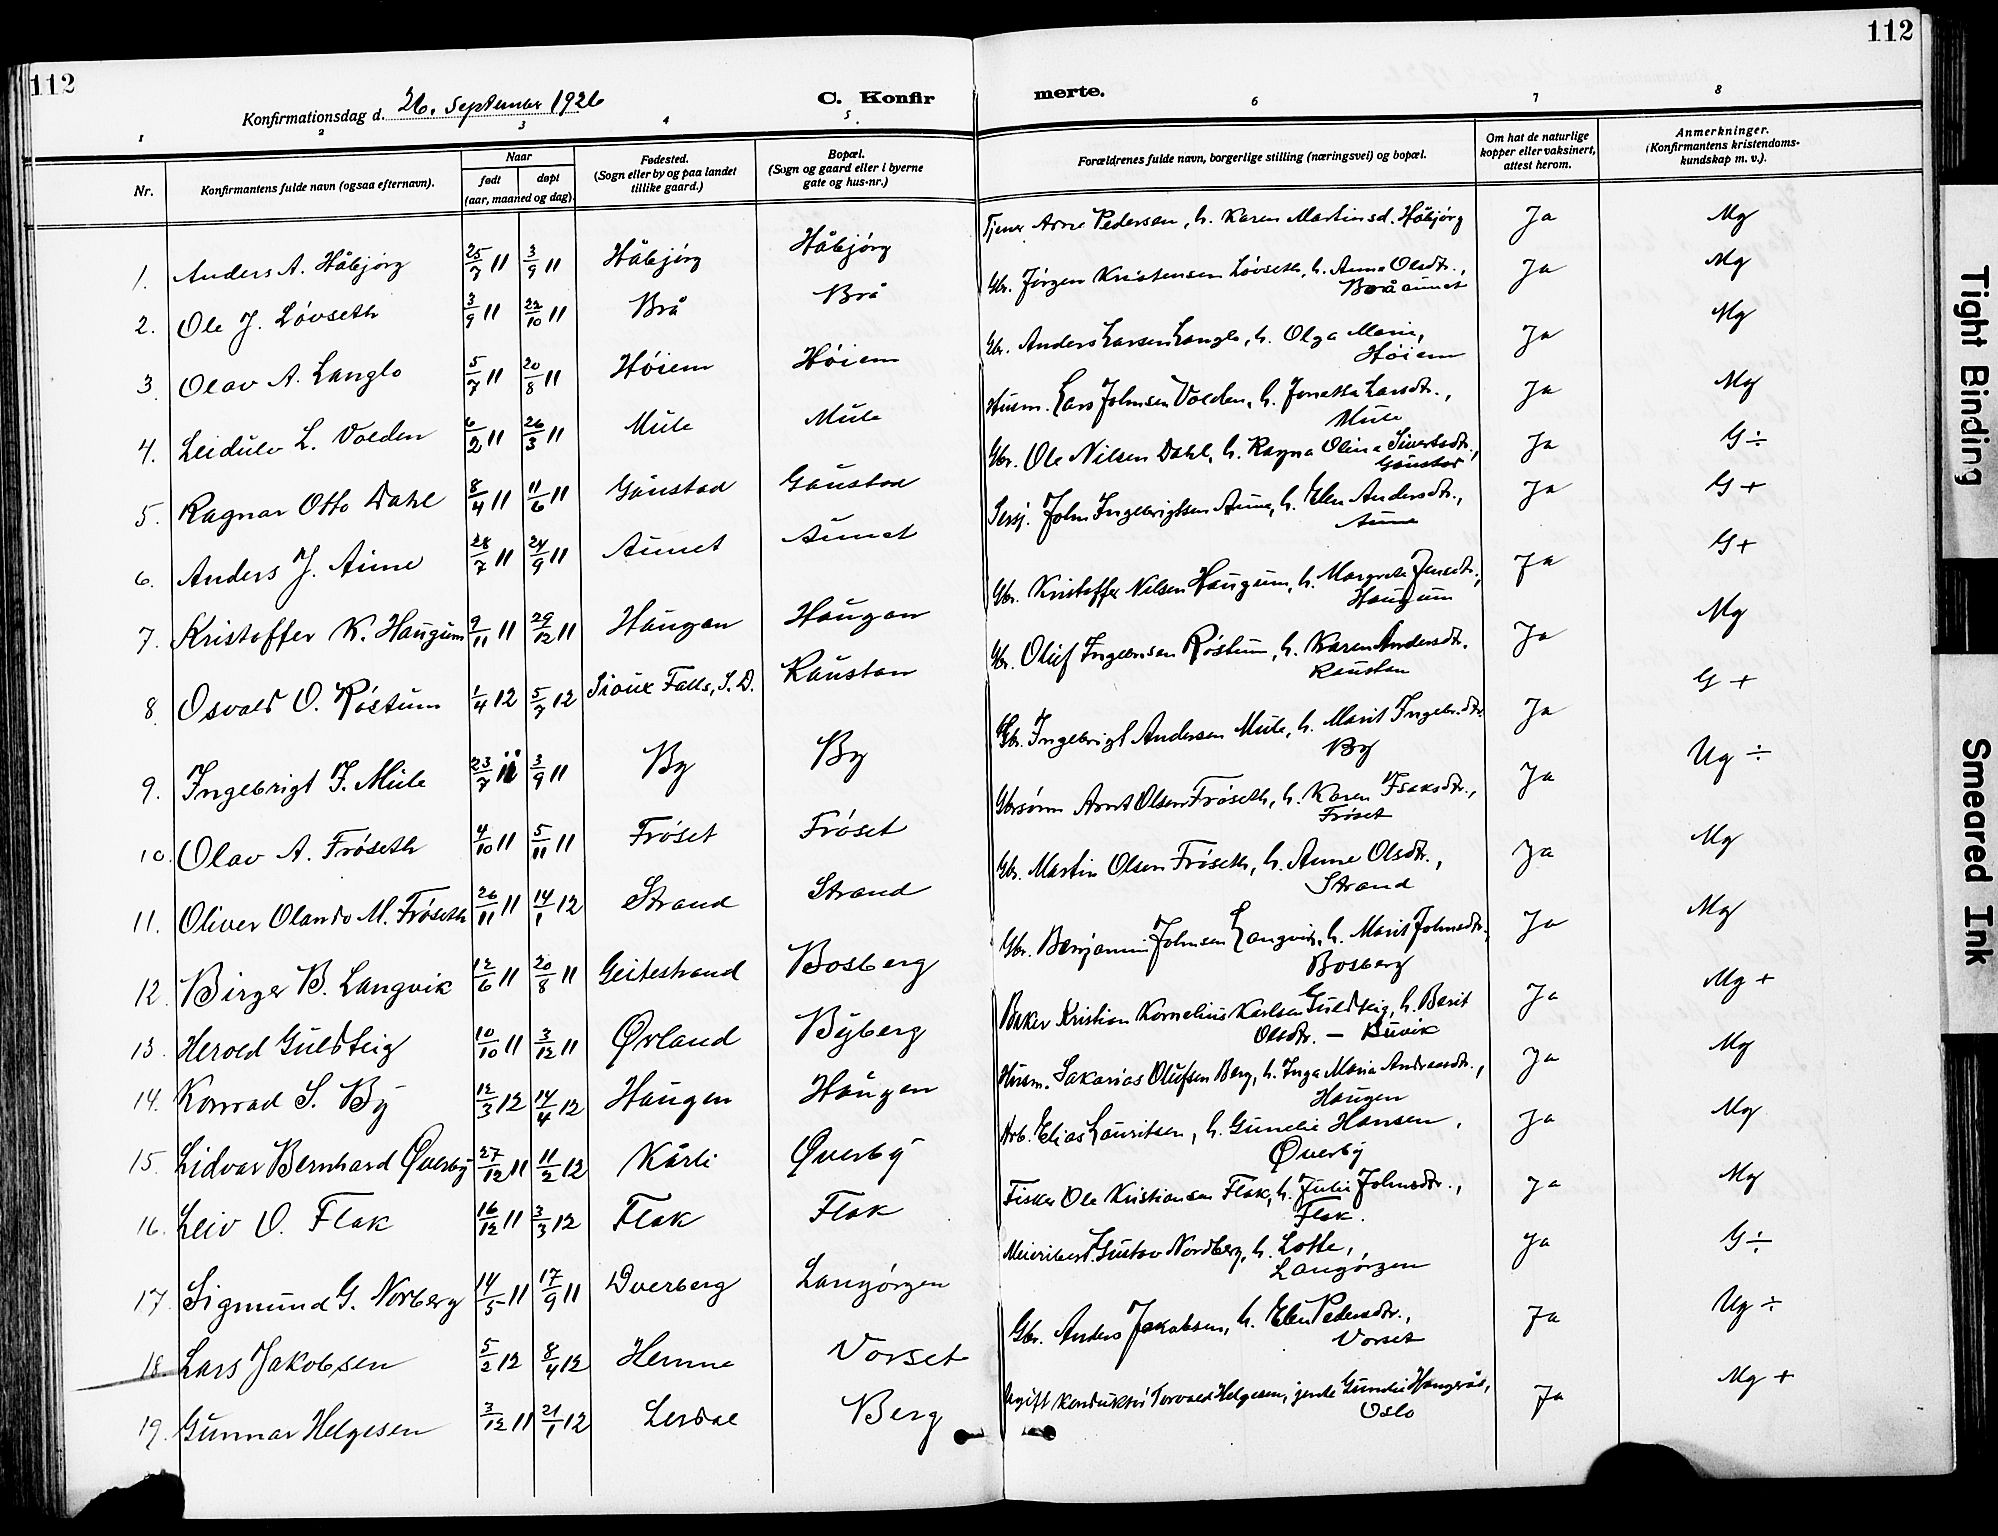 112
112
Konfirmationsdag d. 26. September 1926
C. Konfir
merte.
1 2 3 4 5 6 7 8
Nr.
Konfirmantens fulde navn (ogsaa efternavn).
Naar
født
døpt
(aar, maaned og dag)
Fødested.
(Sogn eller by og paa landet
tillike gaard.)
Bopæl.
(Sogn og gaard eller i byerne
gate og hus-nr.)
Forældrenes fulde navn, borgerlige stilling (næringsvei) og bopæl.
Om hat de naturlige
kopper eller vaksinert,
attest herom.
Anmerkninger.
(Konfirmantens kristendoms-
kundskap m. v.).
1. Anders A. Håbjørg 25/7 11 3/9 11 Håbjørg Håbjørg Tjener Arne Pedersen, h. Karen Martinsd. Håbjørg Ja Mg
2. Ole J. Løvseth 3/9 11 22/10 11 Brå Brå Gbr. Jørgen Kristensen Løvseth, h. Anne Olsdtr., Ja Mg
Bråaunet
3. Olav A. Langlo 5/7 11 20/8 11 Høiem Høiem Gbr. Anders Larsen Langlo, h. Olga Marie, Ja Mg
Høiem
4. Leidulv L. Volden 6/2 11 26/3 11 Mule Mule Husm. Lars Johnsen Volden, h. Jonetta Larsdtr., Ja Mg
Mule
5. Ragnar Otto Dahl 8/4 11 11/6 11 Gaustad Gaustad Gbr. Ole Nilsen Dahl, h. Ragna Olina Sivertsdtr., Ja G ÷
Gaustad
6. Anders J. Aune 28/7 11 24/9 11 Aunet Aunet Sersj. John Ingebrigtsen Aune, h. Elen Andersdtr., Ja G +
Aune
7. Kristoffer K. Haugum 9/11 11 29/12 11 Haugan Haugan Gbr. Kristoffer Nilsen Haugum, h. Margrete Jensdtr., Ja G +
Haugum
8. Osvald O. Røstum 1/4 12 5/7 12 Sioux Falls, S. D. Raustan Gbr. Oluf Ingebr.sen Røstum, h. Karen Andersdtr. Ja Mg
Raustan
9. Ingebrigt I. Mule 23/7 11 3/9 11 By By Gbr. Ingebrigt Andersen Mule, h. Marit Ingebr.dtr. Ja G +
By
10. Olav A. Frøseth 4/10 11 5/11 11 Frøset Frøset Gbrsønn Arnt Olsen Frøseth, h. Karen Isaksdtr., Ja Ug ÷
Frøset
11. Oliver Olando M. Frøseth 26/11 11 14/1 12 Strand Strand Gbr. Martin Olsen Frøseth, h. Anne Olsdtr., Ja Mg
Strand
12. Birger B. Langvik 12/6 11 20/8 11 Geitestrand Bosberg Gbr. Benjamin Johnsen Langvik, h. Marit Johnsdtr., Ja Mg
Bosberg
13. Herold Guldteig 10/10 11 3/12 11 Ørland Byberg Baker Kristian Kornelius Karlsen Guldteig, h. Berit Ja Mg +
Olsdtr. — Buvik
14. Konrad S. By 12/3 12 14/4 12 Haugen Haugen Husm. Sakarias Olufsen Berg, h. Inga Maria Andreasdtr., Ja Mg
Haugen
15. Lidvar Bernhard Øverby 27/12 11 11/2 12 Kårli Øverby Arb. Elias Lauritsen, h. Gunelie Hansen, Ja Mg
Øverby
16. Leiv O. Flak 16/12 11 3/3 12 Flak Flak Fisker Ole Kristiansen Flak, h. Julie Johnsdtr., Ja Mg
Flak.
17. Sigmund G. Norberg 14/5 11 17/9 11 Dverberg Langørgen Meieribest. Gustav Nordberg, h. Lotte, Ja G ÷
Langørgen
18. Lars Jakobsen 5/2 12 8/4 12 Hemne Vorset Gbr. Anders Jakobsen, h. Elen Pedersdtr., Ja Ug ÷
Vorset
19. Gunnar Helgesen 3/12 11 21/1 12 Berg Ugift konduktør Torvald Helgesen, jente Gunelie Ja Mg +
Oslo
Tight Binding
Smeared Ink